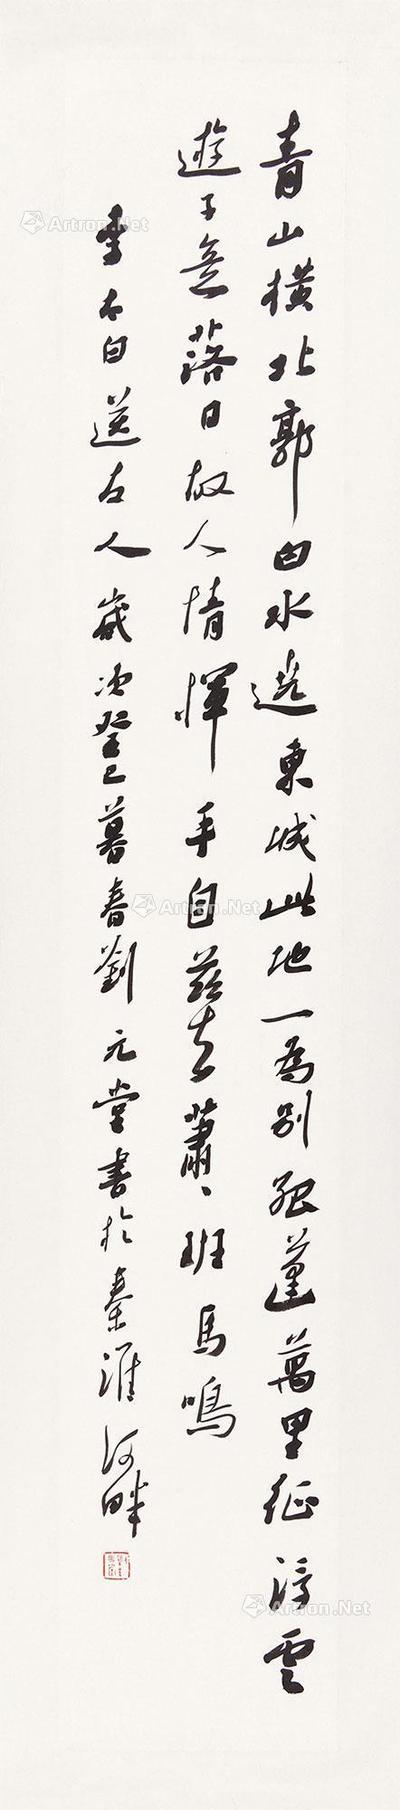 青山橫北郭白水遶東城此地一為別孤蓬萬里征浮雲
遊子意落日故人情揮手自茲去蕭、班馬鳴
李太白送友人歲次癸巳暮春劉元堂書於秦淮河畔
Artron.Net
Artron.Net
Artron.Net